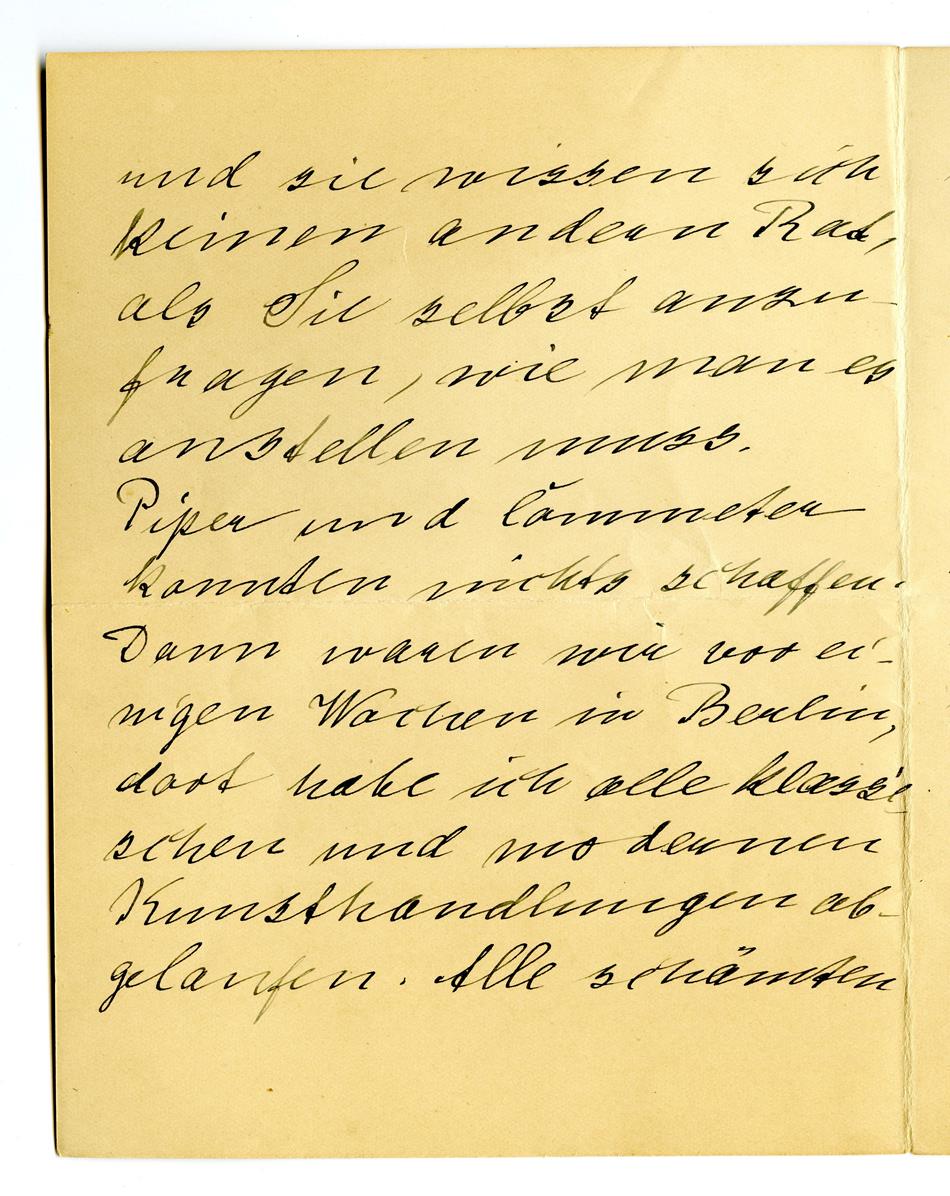 und sie wissen sich
keinen andern Rat,
als Sie selbst anzu-
fragen, wie man es
anstellen muss.
Piper und Commeter
konnten nichts schaffen.
Dann waren wir vor ei-
nigen Wochen in Berlin,
dort habe ich alle klassi-
schen und modernen
Kunsthandlungen ab-
gelaufen. Alle schämten